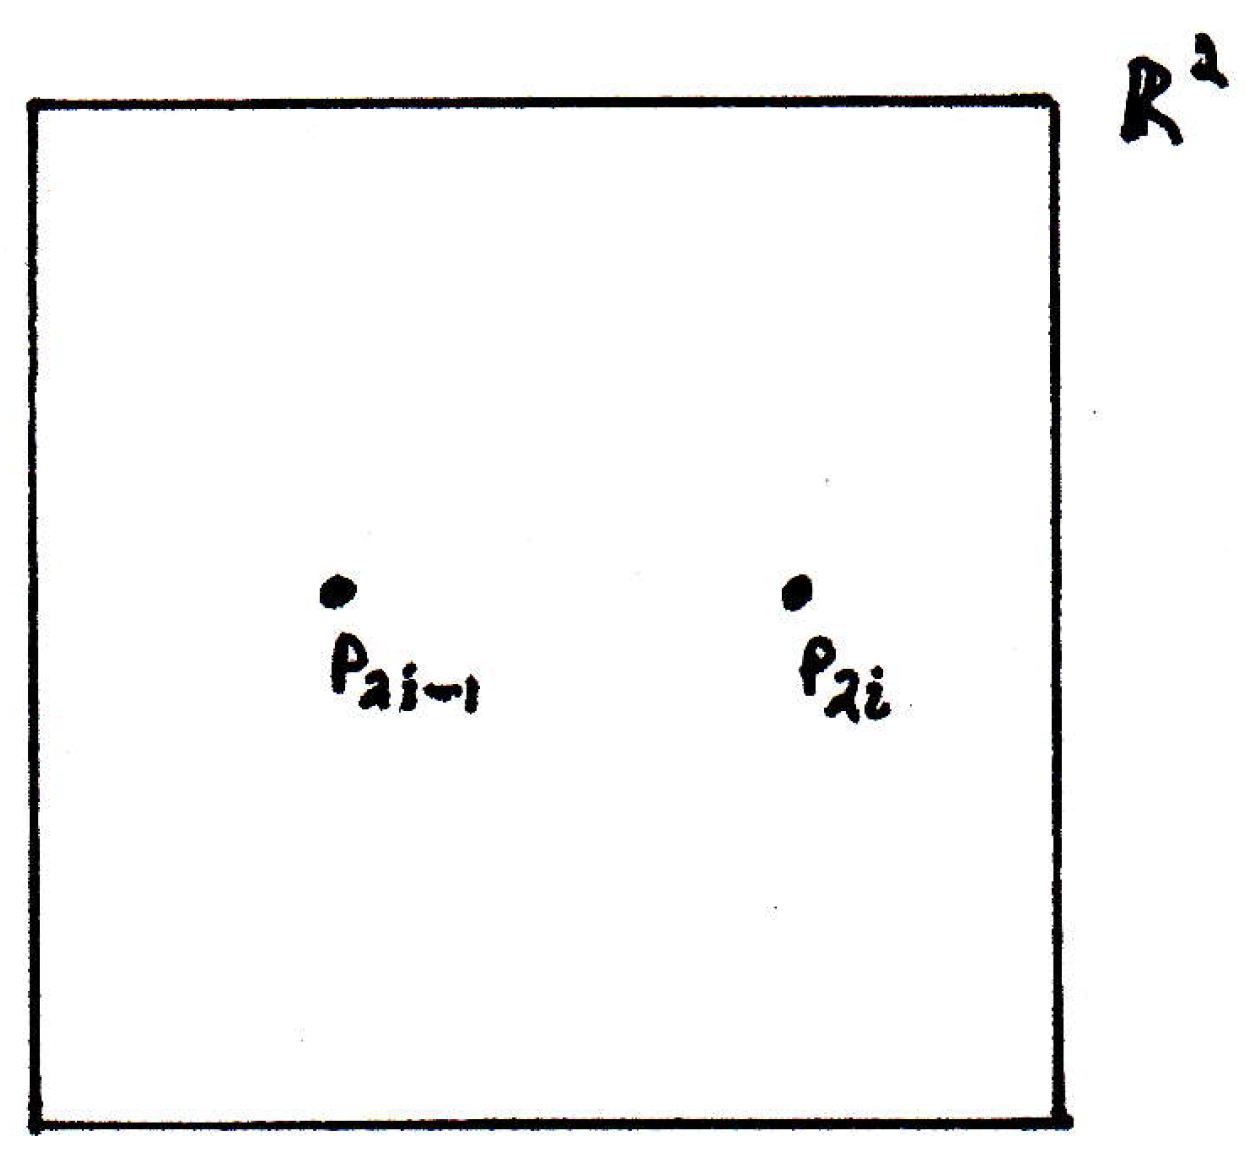 R²
P₂ᵢ₋₁ P₂ᵢ